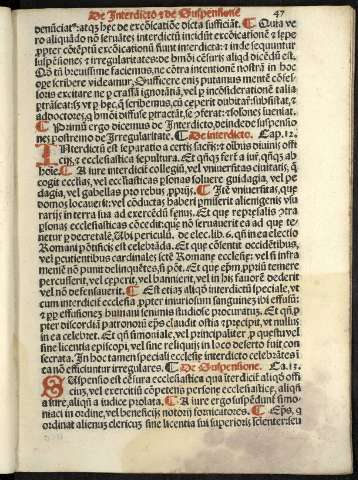 De Interdicto ⁊ de Suspensione 47
denũciatᵘʳ: atq₃ hęc de excõicatiõe dicta sufficiãt. ¶ Quia ve
ro aliquãdo nõ seruãtes interdictũ incidũt excõicatiõnẽ ⁊ sępe
ꝓpter cõtẽptũ excõicatiõnũ fiunt interdicta: ⁊ inde sequuntur
suspẽsiones ⁊ irregularitates: de hmõi cẽsuris aliqd dicẽdũ est.
breuissime faciemus, ne cõtra intentionẽ nostrã in hoc
ope scribere videamur. Sufficere enis putamus mentẽ
excitare ne ꝑ crassã ignorãtiã, vel ꝑ incõsiderationẽ talia
si vᵒ ꝑ hęc, q̃ scribemus, cũ ceperit dubitar̃ subsistat, ⁊
addoctores, q̃ hmõi diffuse
¶ Primũ ergo dicemus de Interdicto, deinde de suspensio
ne, ⁊ postremo de Irregularitate. ¶ De interdicto. Cap. 12.
INterdictũ est sepãratio a certis sacris: ⁊ oĩbus diuinis offi
cijs, ⁊ ecclesiastica sepultura. Et qñq₃ fert a iur̃, qñq₃ ab
hoĩe. ¶ A iure interdicit collegiũ, vel vniuersitas ciuitatis, q̃
cogit ecclias, vel ecclesiasticas psonas soluere guidagia, vel pe
dagia, vel gabellas pro rebus ꝓprijs. ¶ Itẽ vniuersitas, que
domos locauerit: vel cõductas haberi pmiserit alienigenis vsu
rarijs in terra sua ad exercẽdũ fęnus. Et que represalias cõtra
psonas ecclesiasticas cõcedit: que nõ seruauerit ea ad que te
netur ꝑ decretale. Vbi periculũ. de elec. lib. 6. qñ in ea electio
Romani põtificis est celebrãda. Et que cõsentit occidẽtibus,
vel percutientibus cardinales sctẽ Romane ecclesię: vel si infra
mensẽ nõ punit delinquẽtes, si põt. Et que epm̃ ꝓpriũ temere
percusserit, vel ceperit, vel bannierit, vel in his fauorẽ dederit
vel nõ defensauerit. ¶ Est etiam aliqd interdictũ speciale, vt
cum interdicit ecclesia ꝓpter iniuriosum sanguinez ibi effusũ:
⁊ ꝑꝑ effusionez humani seminis studiose procuratus. Et qñ ꝓ
pter discordiã patronorũ eps claudit ostia ⁊ pręcipit, vt nullus
in ea celebret. Et qñ simoniale, vel principaliter ꝓ questu vel
sine licentia episcopi, vel sine reliquijs in loco deserto fuit con
secrata. In hoc tamen speciali ecclesie interdicto celebrãtes i
ea nõ efficiuntur irregulares. ¶ De Suspensione. Ca. 13.
SUspensio est cẽsura ecclesiastica qua iterdicit aliqd offi
cius, vel exercitiũ cõpetens psone ecclesiastice, aliqñ
a iure, aliqñ a iudice prolata. ¶ A iure ergo suspẽdunt simo
niaci in ordine, vel beneficijs notorij fornicatores. ¶ Eps, q̃
ordinat alienus clericus sine licentia sui superioris scienter, seu